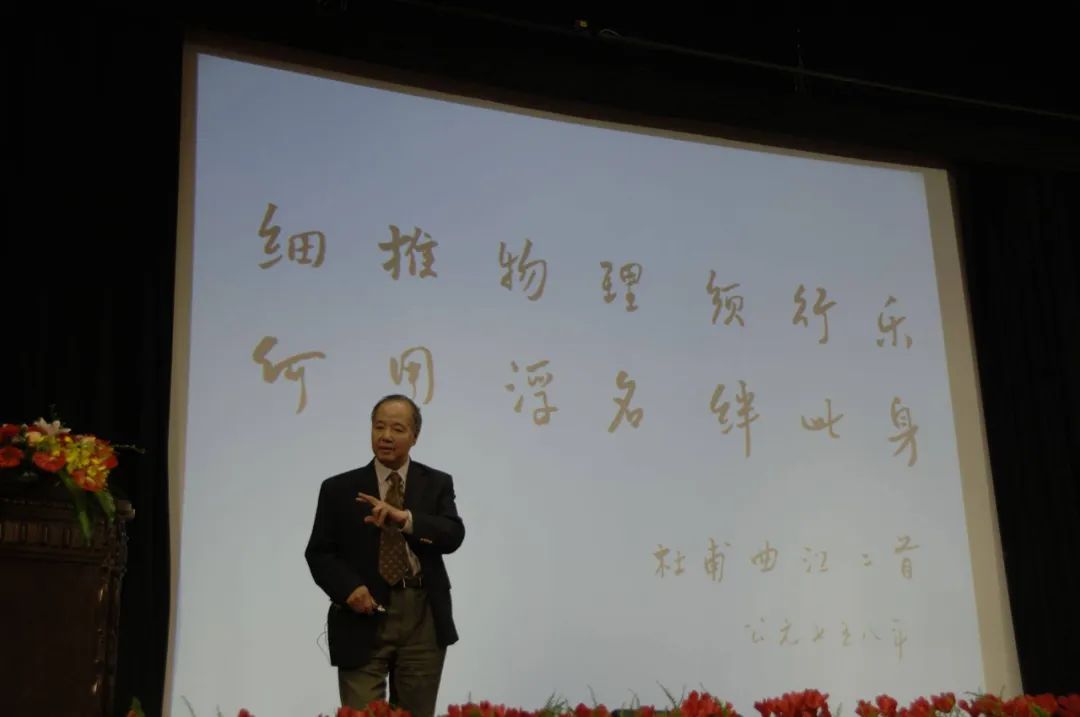 细推物理须行乐
何用浮名绊此身
杜甫曲江二首
公元七五八年